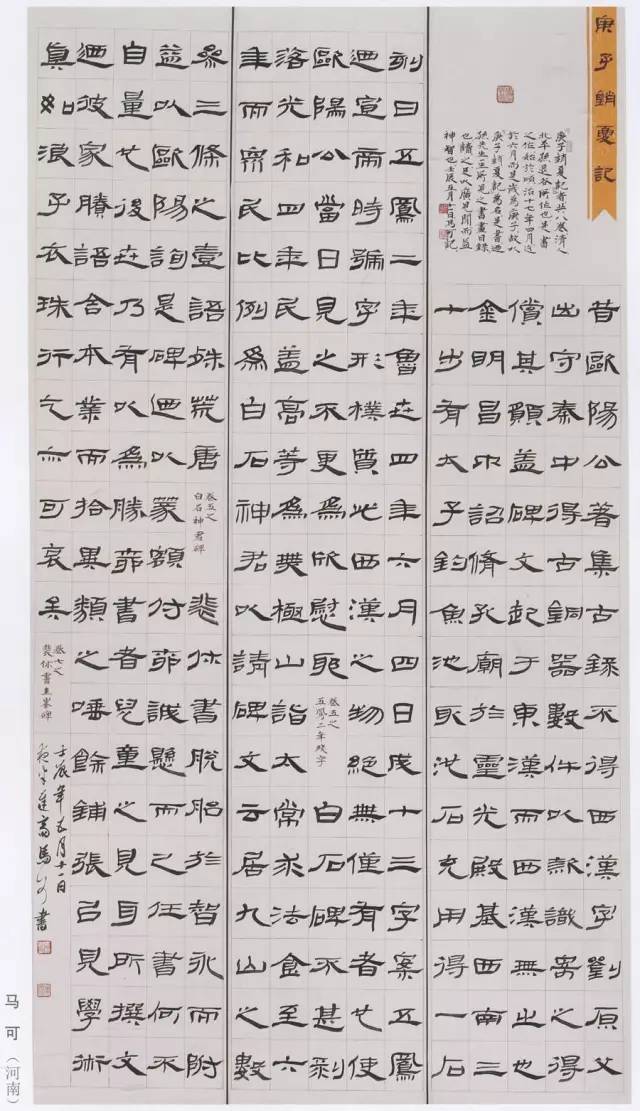 庚子銷夏記
庚子銷夏記者共八卷清人
北平孫退谷所作也是書
之作始於順治十七年四月迄
於六月而是歲為庚子故以
庚子銷夏記為名是書迺
孫先生生所見之書畫目錄
也讀之足以廣見聞而益
神智也壬辰五月十日馬可記
昔歐陽公著集古錄不得西漢字劉原父
出守秦中得古銅器數件以款識寄之得
償其願蓋碑文起于東漢而西漢無之也
金明昌中詔脩孔廟於靈光殿基西南三
十步有太子釣魚池取池石充用得一石
刻曰五鳳二年魯卅四年六月四日成十三字案五鳳
迺宣帝時號字形樸質此西漢之物絕無僅有者也使
歐陽公當日見之不更為所慰耶
卷五之
五鳳二年殘字
白石碑不甚剝
落光和四年民蓋高等為無極山詣太常求法食至六
年而常民比例為白石神君以請碑文云居九山之數
參三條之壹語殊荒唐
卷五之
白石神君碑
裴休書脫胎於智永而附
益以歐陽詢是碑迺以篆額付柳誠懸而己任書何不
自量也後世乃有以為勝柳書者兒童之見耳所撰文
迺彼家賸語合本業而拾異類之唾餘鋪張己見學術
真如浪子衣珠行乞亦可哀矣
卷七之
裴休書圭峯碑
壬辰年五月十一日
齋馬可書
马可（河南）